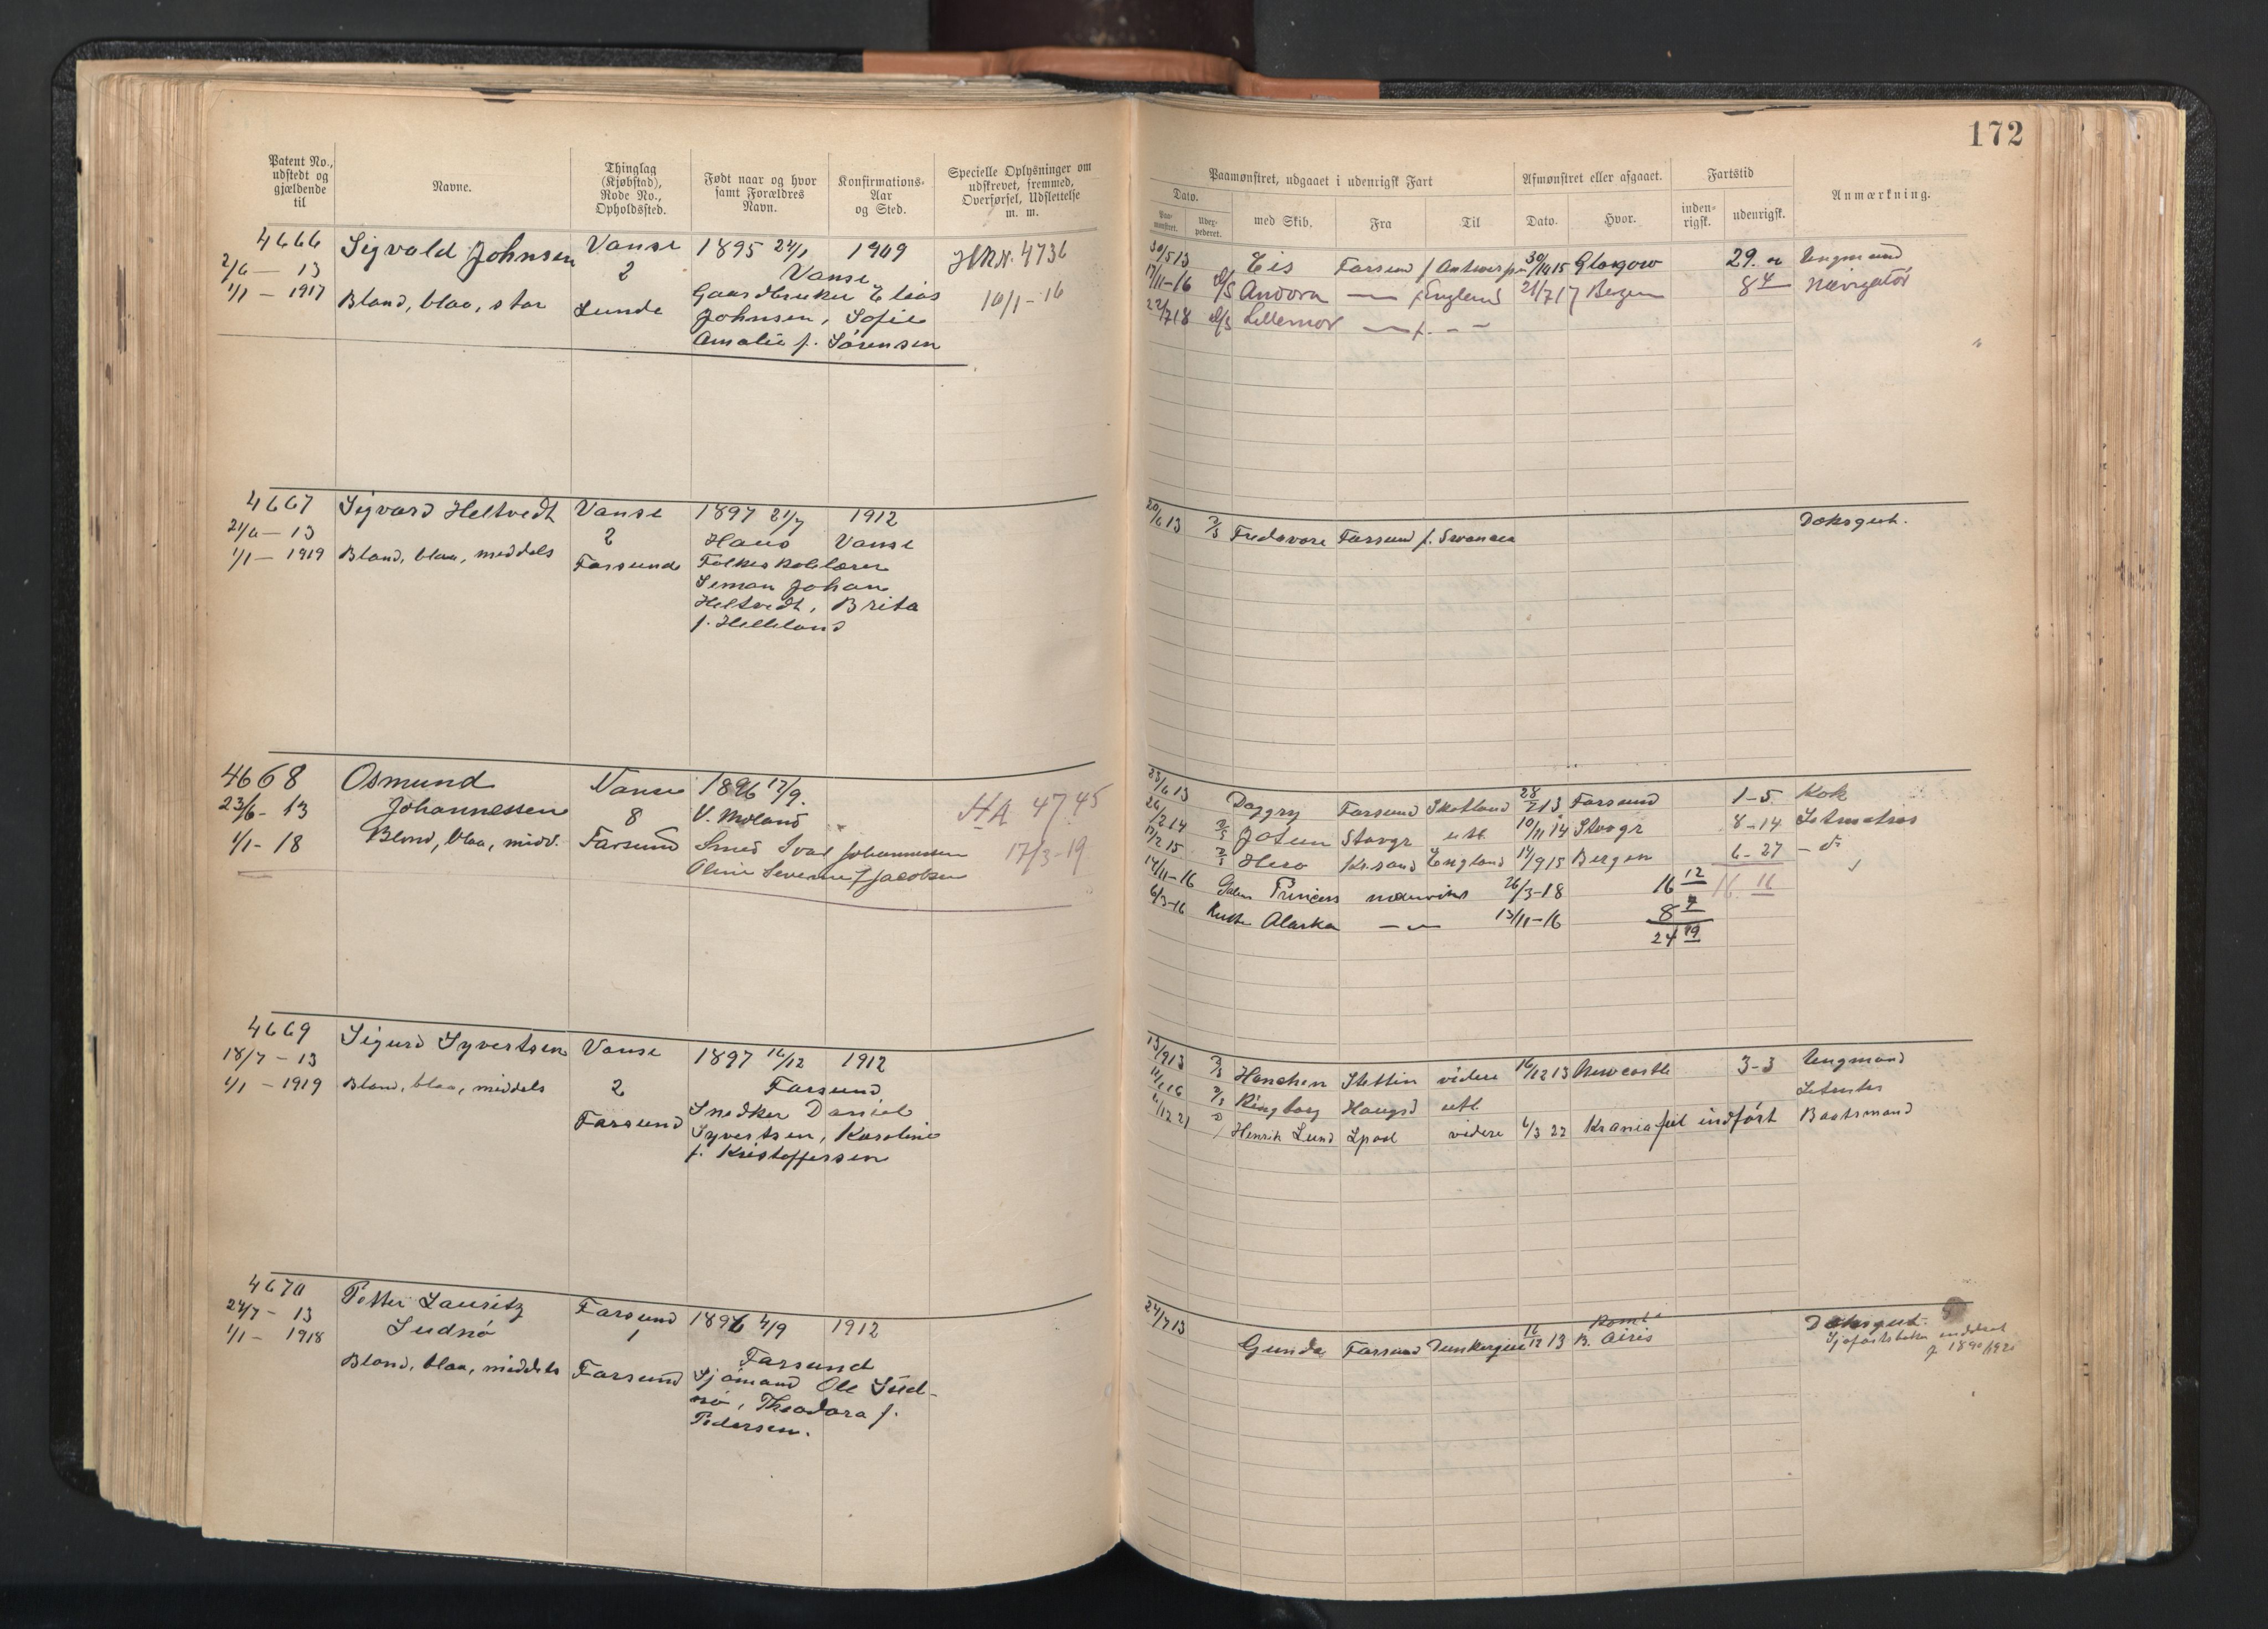 172
Patent No., udstedt og gjældende til
Navne.
Thinglag (Kjøbstad), Rode No., Opholdssted.
Født naar og hvor samt Forældres Navn.
Konfirmations-Aar og Sted.
Specielle Oplysninger om udskrevet, fremmed, Overførsel, Udslettelse m. m.
Paamønstret, udgaaet i udenrigsk Fart
Afmønstret eller afgaaet.
Fartstid
Anmærkning.
Dato.
Paa-mønstret.
Uder-pederet.
med Skib.
Fra
Til
Dato.
Hvor.
inden-rigsk.
udenrigsk.
4666 Sigvald Johnsen Vanse 1895 24/1 1909 4736
2/6 - 13 2 Vanse
1/1 - 1917 Blond, blaa, stor Lunde Gaardbruker Elias 10/1-16
Johnsen, Sofie
Amalie f. Sørensen
30/5 13 Eis Farsund f Antwerpen 30/10 15 Glasgow 29. Ungmand
17/11-16 d/s Andora — f England 21/7 17 Bergen 8 4 Navigatör
22/7 18 d/s Lillemor — f. — —
4667 Sigvard Heltvedt Vanse 1897 21/7 1912
21/6 - 13 2 Haus Vanse
1/1 - 1919 Blond, blaa, middels Farsund Folkeskolelærer
Simon Johan
Heltvedt, Brita
f. Helleland
20/6 13 Fredavore Farsund f. Swansea Dæksgut.
4668 Osmund Vanse 1896 17/9.
23/6 - 13 Johannessen 8 V. Moland HA 4745
1/1 - 18 Blond, blaa, midd. Farsund Smed Ivar Johannessen 17/3-19
Oline Severine f Jacobsen
23/6 13 Daggry Farsund Skotland 28/2 13 Farsund 1-5 Kok
26/2 14 Jotun Stavgr utl 10/11 14 Stavgr 8-14 Letmatros
17/2 15 Hero Kr.sand England 14/9 15 Bergen 6-27 - d
14/11-16 Princess 26/3-18 16 12 16 16
6/3-16 Alaska — 13/11-16 8 7
24 19
4669 Sigurd Syvertsen Vanse 1897 16/12 1912
18/7 - 13 2 Farsund
1/1 - 1919 Blond, blaa, middels Farsund Snedker Daniel
Syvertsen, Karoline
f. Kristoffersen
13/9 13 Hanchen Stettin videre 16/12 13 Newcastle 3-3 Ungmand
Ringborg Haugsd utl
6/12 21 Henrik Lund Lpool videre 6/3 22 Krania fil indført Baatsmand
4670 Petter Lauritz Farsund 1896 4/9 1912
24/7 - 13 Sudnö 1 Farsund
1/1 - 1918 Blond, blaa, middels Farsund Sjömand Ole Sud-
nö, Theodora f.
Pedersen.
24/7 13 Gunda Farsund Dunkerque 16/12 13 Rømt i B. Airis Dæksgut.